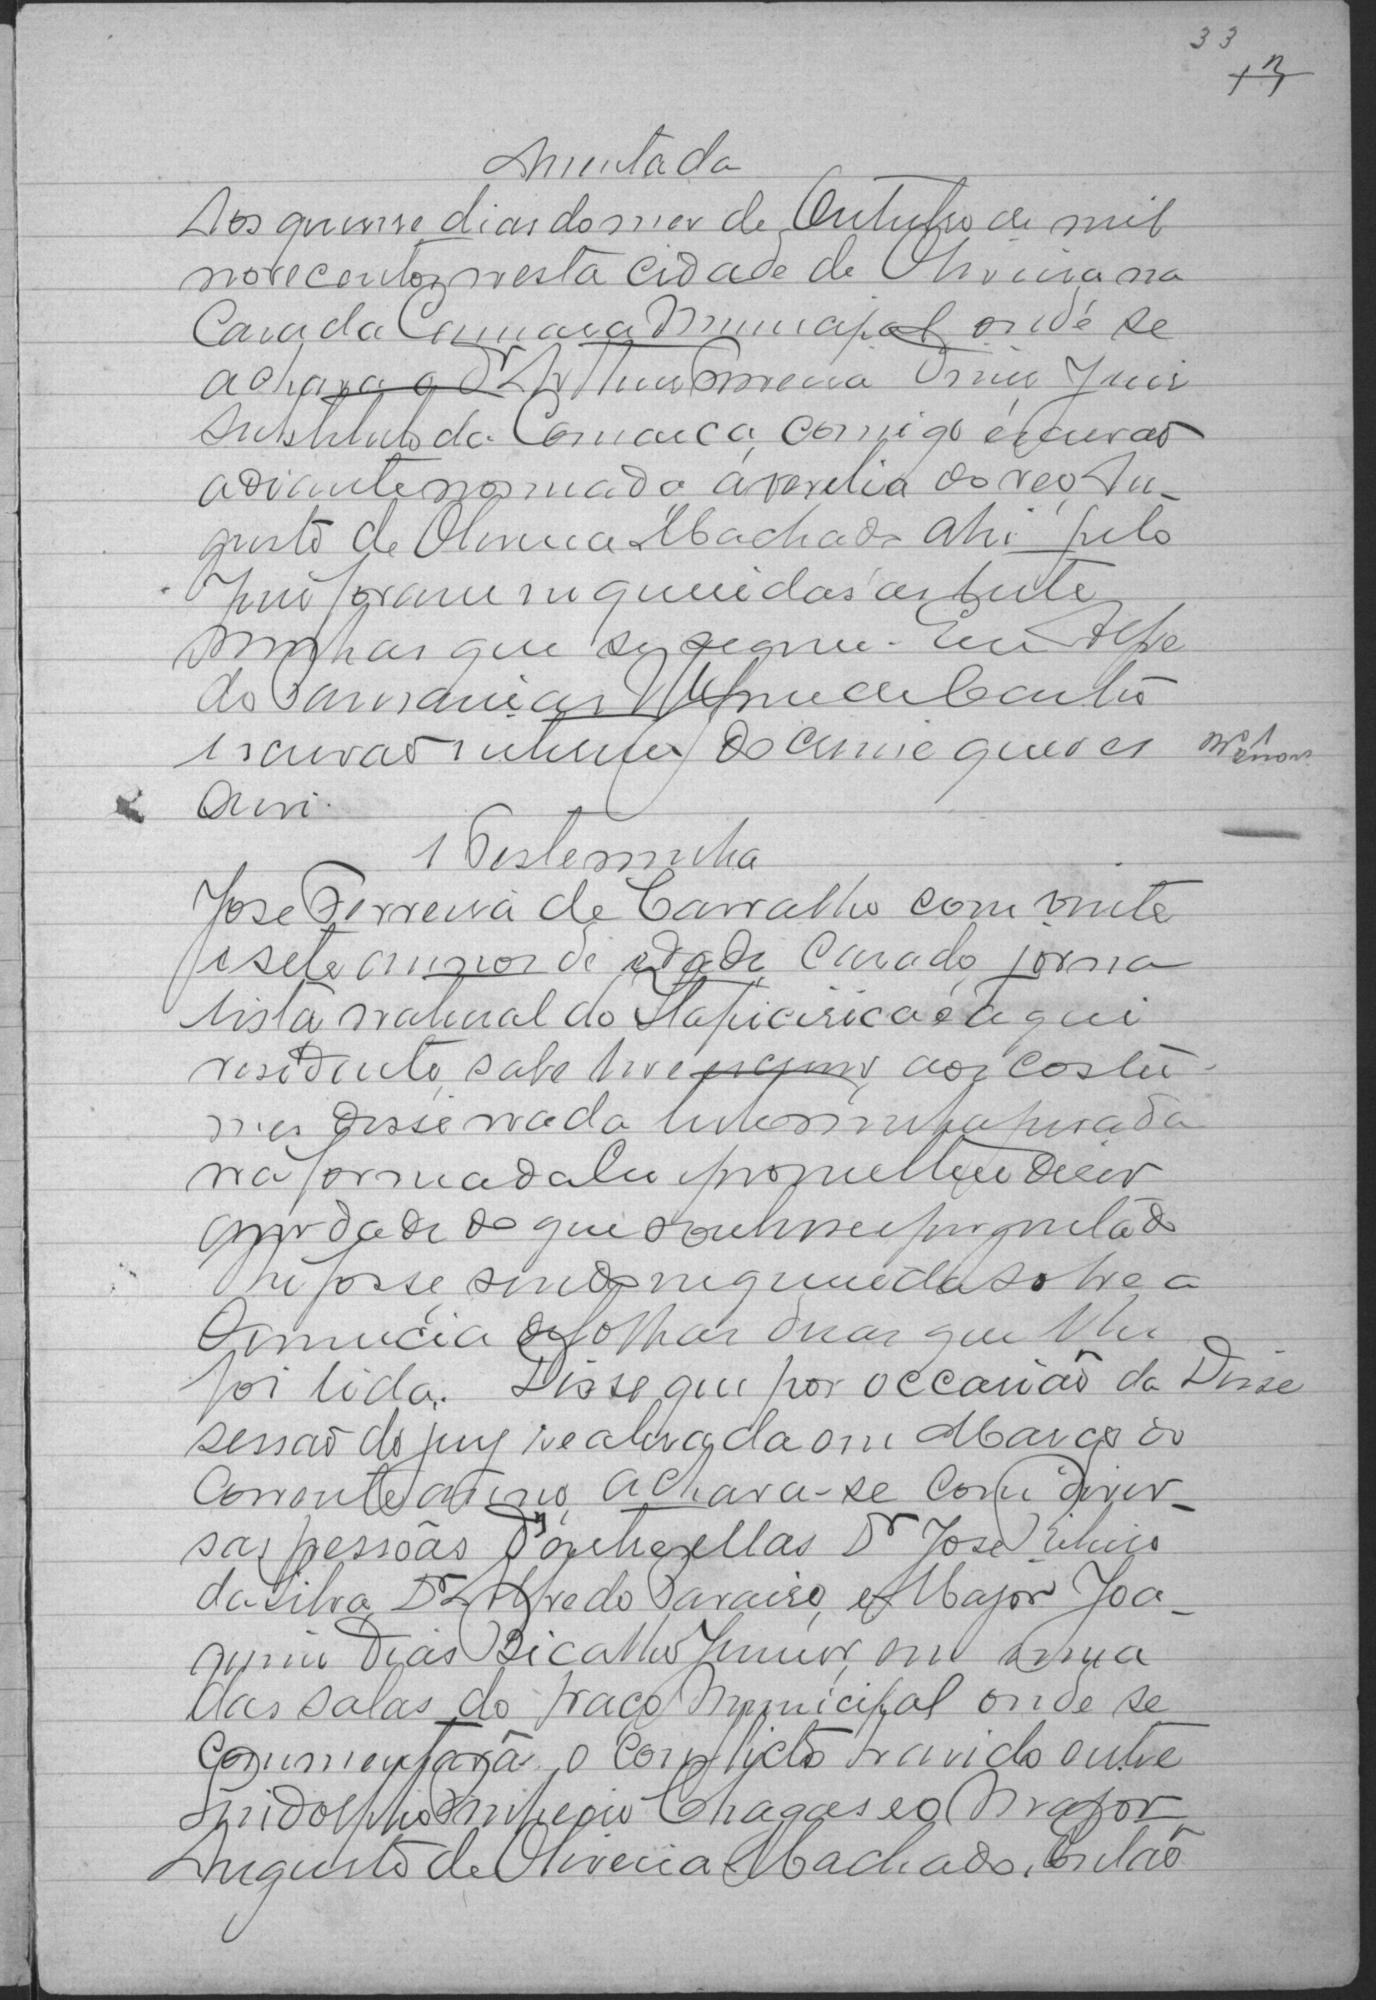 33
Assentada
Aos quinse dias do mez de Outubro de mil
novecentos nesta cidade de Oliveira na
Casa da Camara Municipal onde se
achava o Dr Arthur Diniz Juiz
Substituto da Comarca, comigo escrivão
adiante nomeado, á revelia do reo Au-
gusto de Oliveira Machado ahi pelo
Juiz foram inqueridas as teste
munhas que se seguem. Eu Alfre
do de Castro
escrivão interino do crime que o es
crevi.
1 Testemunha
José Ferreira de Carvalho com vinte
e sete annos de edade, casado, jorna
lista natural do Itapicirica e aqui
residente, sabe ler e escrever, aos costu-
mes disse nada testemunha jurada
na forma da lei prometteu dizer
a verdade do que soubesse e perguntado
lhe fosse, sendo inquerida sobre a
denuncia de folhas duas que lhe
foi lida. Disse que por occasião da Disse
sessão do jury realisada em Março do
corrente anno, achava-se com diver-
sas pessôas d'entre ellas Dr José Ribeiro
da Silva, Dr Alfredo Paraiso, e Major Joa-
quim Dias Bicalho Junior, em uma
das salas do paço Municipal onde se
commentava o conflicto havido entre
Lindolpho Chagas e o Major
Augusto de Oliveira Machado. Então